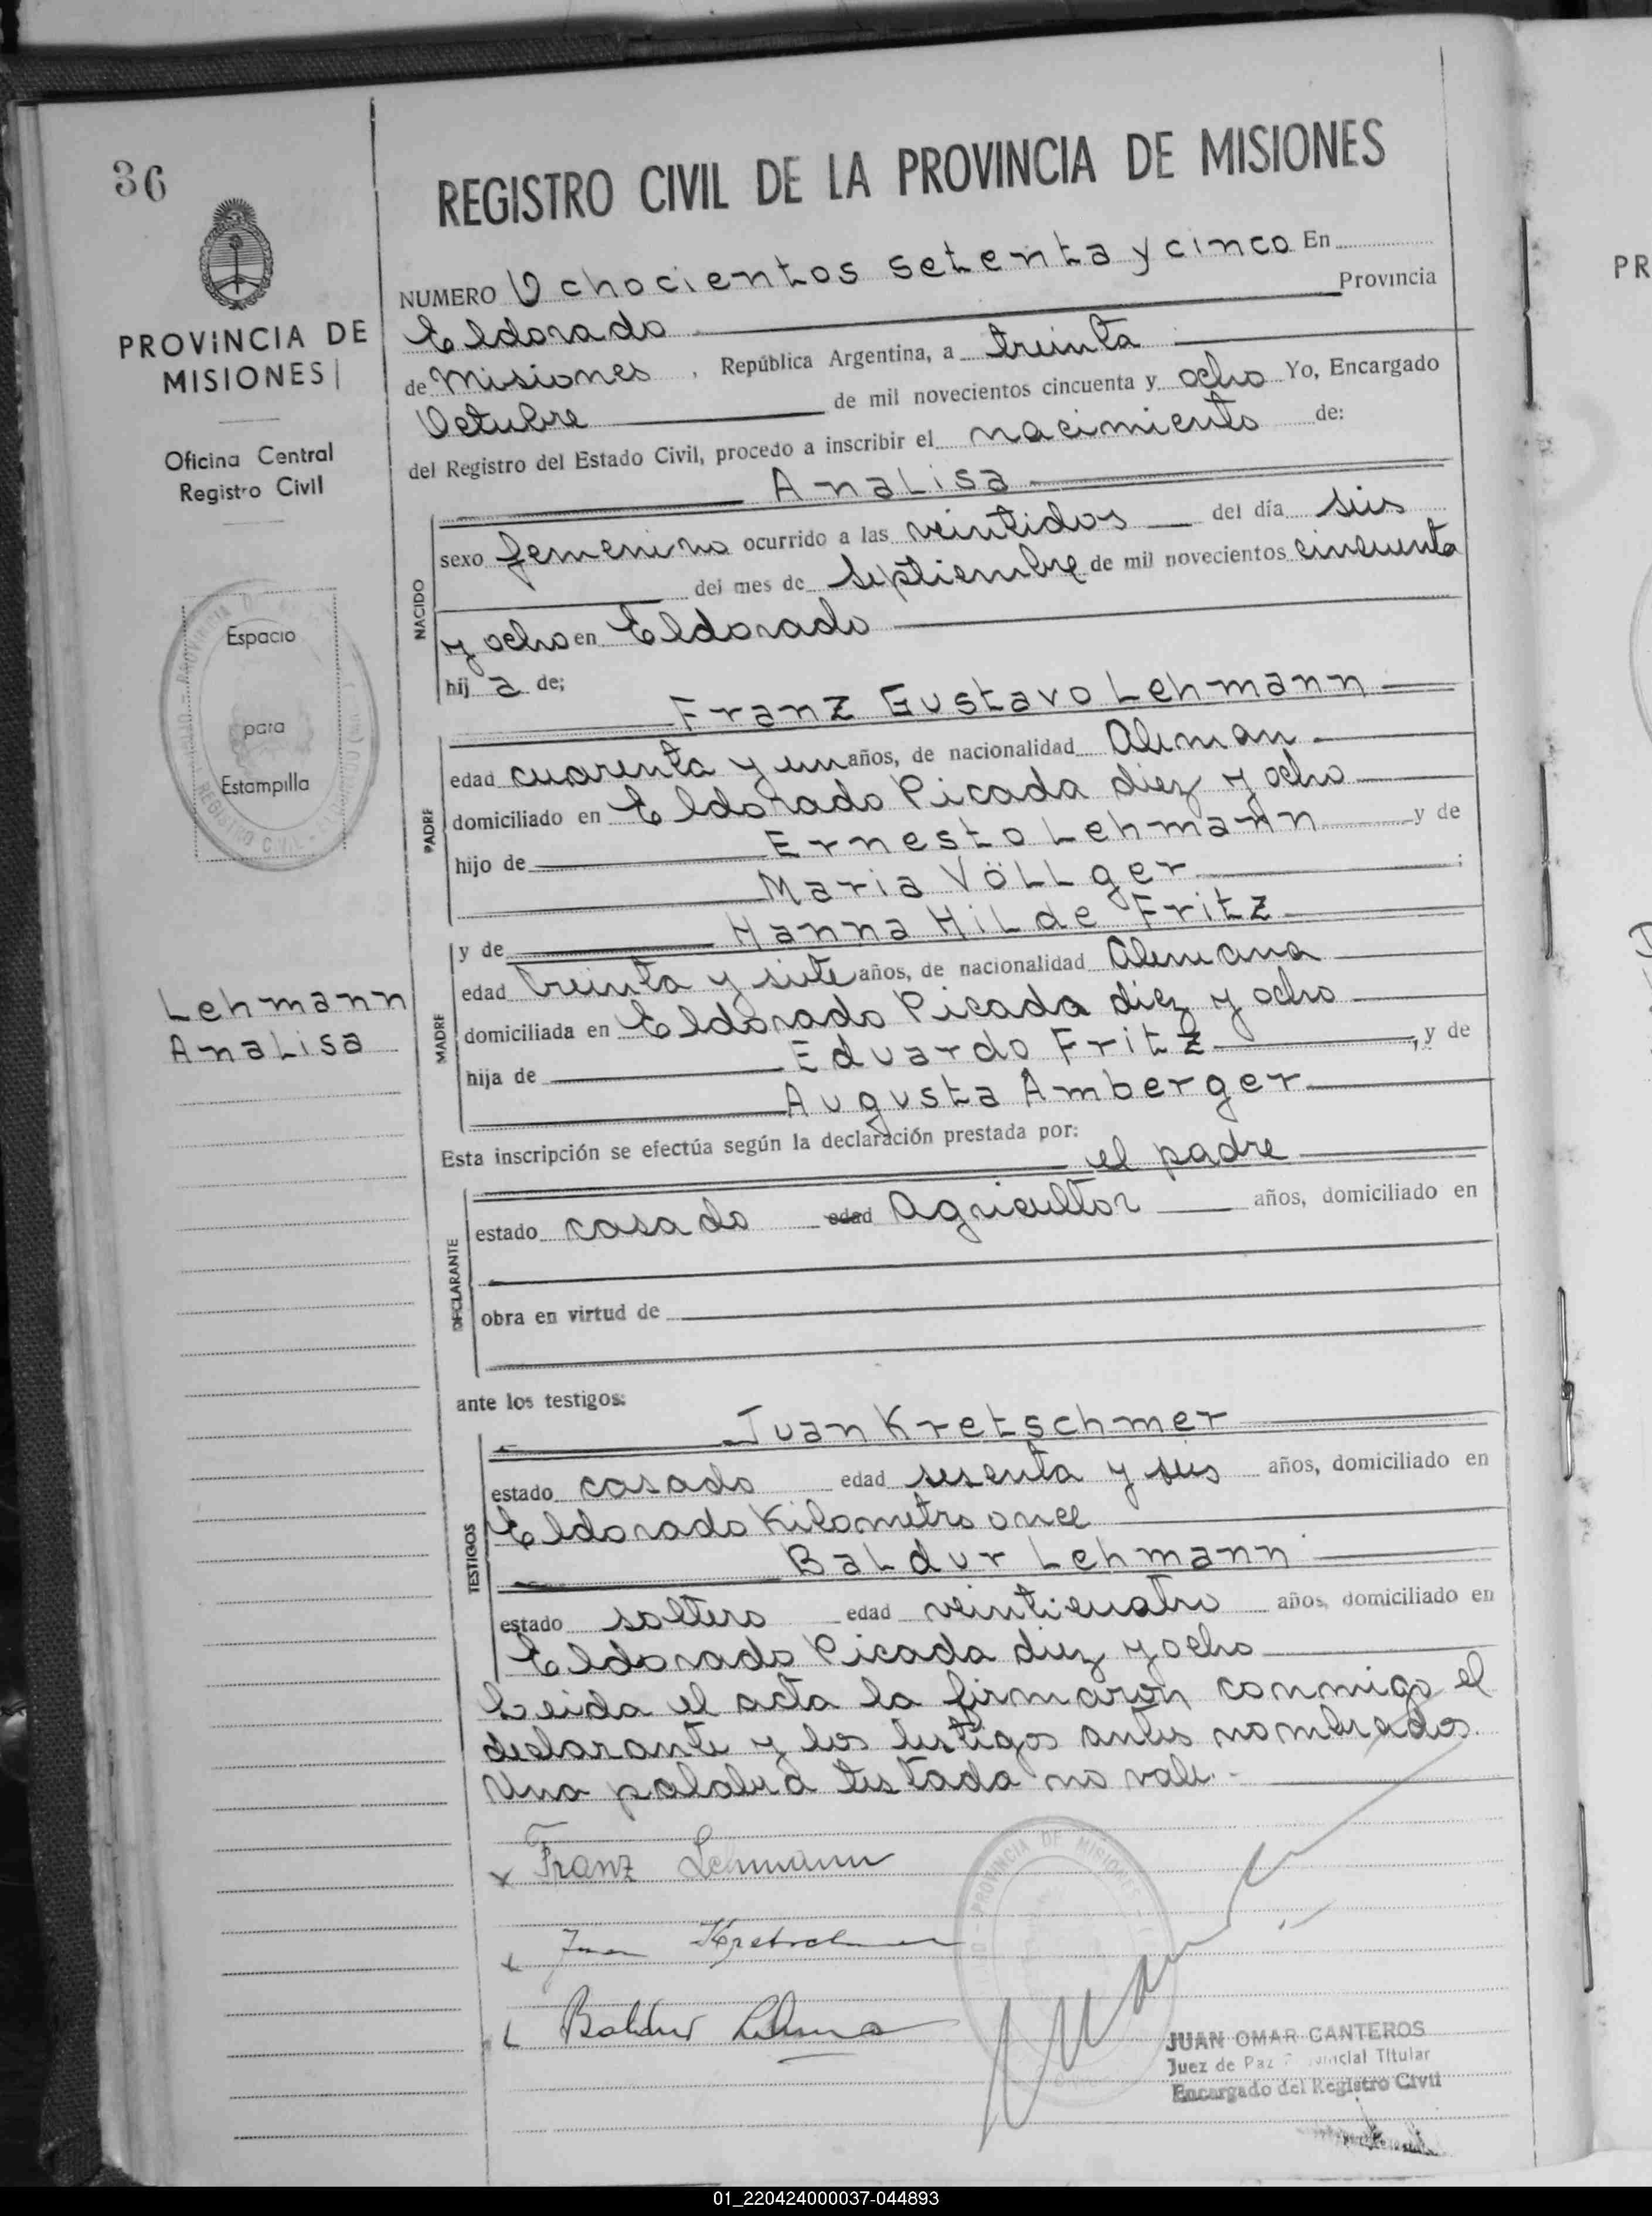 36
REGISTRO CIVIL DE LA PROVINCIA DE MISIONES
PROVINCIA DE
MISIONES
Oficina Central
Registro Civil
Espacio
para
Estampilla
Lehmann
Analisa
NUMERO Ochocientos setenta y cinco En
Eldorado Provincia
de Misiones, República Argentina, a treinta
Octubre de mil novecientos cincuenta y ocho Yo, Encargado
del Registro del Estado Civil, procedo a inscribir el nacimiento de:
Analisa
NACIDO
sexo femenino ocurrido a las veintidos del día seis
del mes de Septiembre de mil novecientos cincuenta
y ocho en Eldorado
hij a de;
Franz Gustavo Lehmann
PADRE
edad cuarenta y un años, de nacionalidad Aleman
domiciliado en Eldorado Picada diez y ocho
hijo de Ernesto Lehmann y de
Maria Völlger ;
y de Hanna Hilde Fritz
MADRE
edad treinta y siete años, de nacionalidad Alemana
domiciliada en Eldorado Picada diez y ocho
hija de Eduardo Fritz, y de
Augusta Amberger
Esta inscripción se efectúa según la declaración prestada por:
el padre
DECLARANTE
estado casado edad Agricultor años, domiciliado en
obra en virtud de
ante los testigos:
Juan Kretschmer
TESTIGOS
estado casado edad sesenta y seis años, domiciliado en
Eldorado Kilometro once
Baldur Lehmann
estado soltero edad veinticuatro años, domiciliado en
Eldorado Picada diez y ocho
Leida el acta la firmaron conmigo el
declarante y los testigos antes nombrados.
Una palabra testada no vale.-
x Franz Lehmann
x Juan Kretschmer
x Baldur Lehmann
PROVINCIA DE MISIONES
JUAN OMAR CANTEROS
Juez de Paz Provincial Titular
Encargado del Registro Civil
PR
01_220424000037-044893